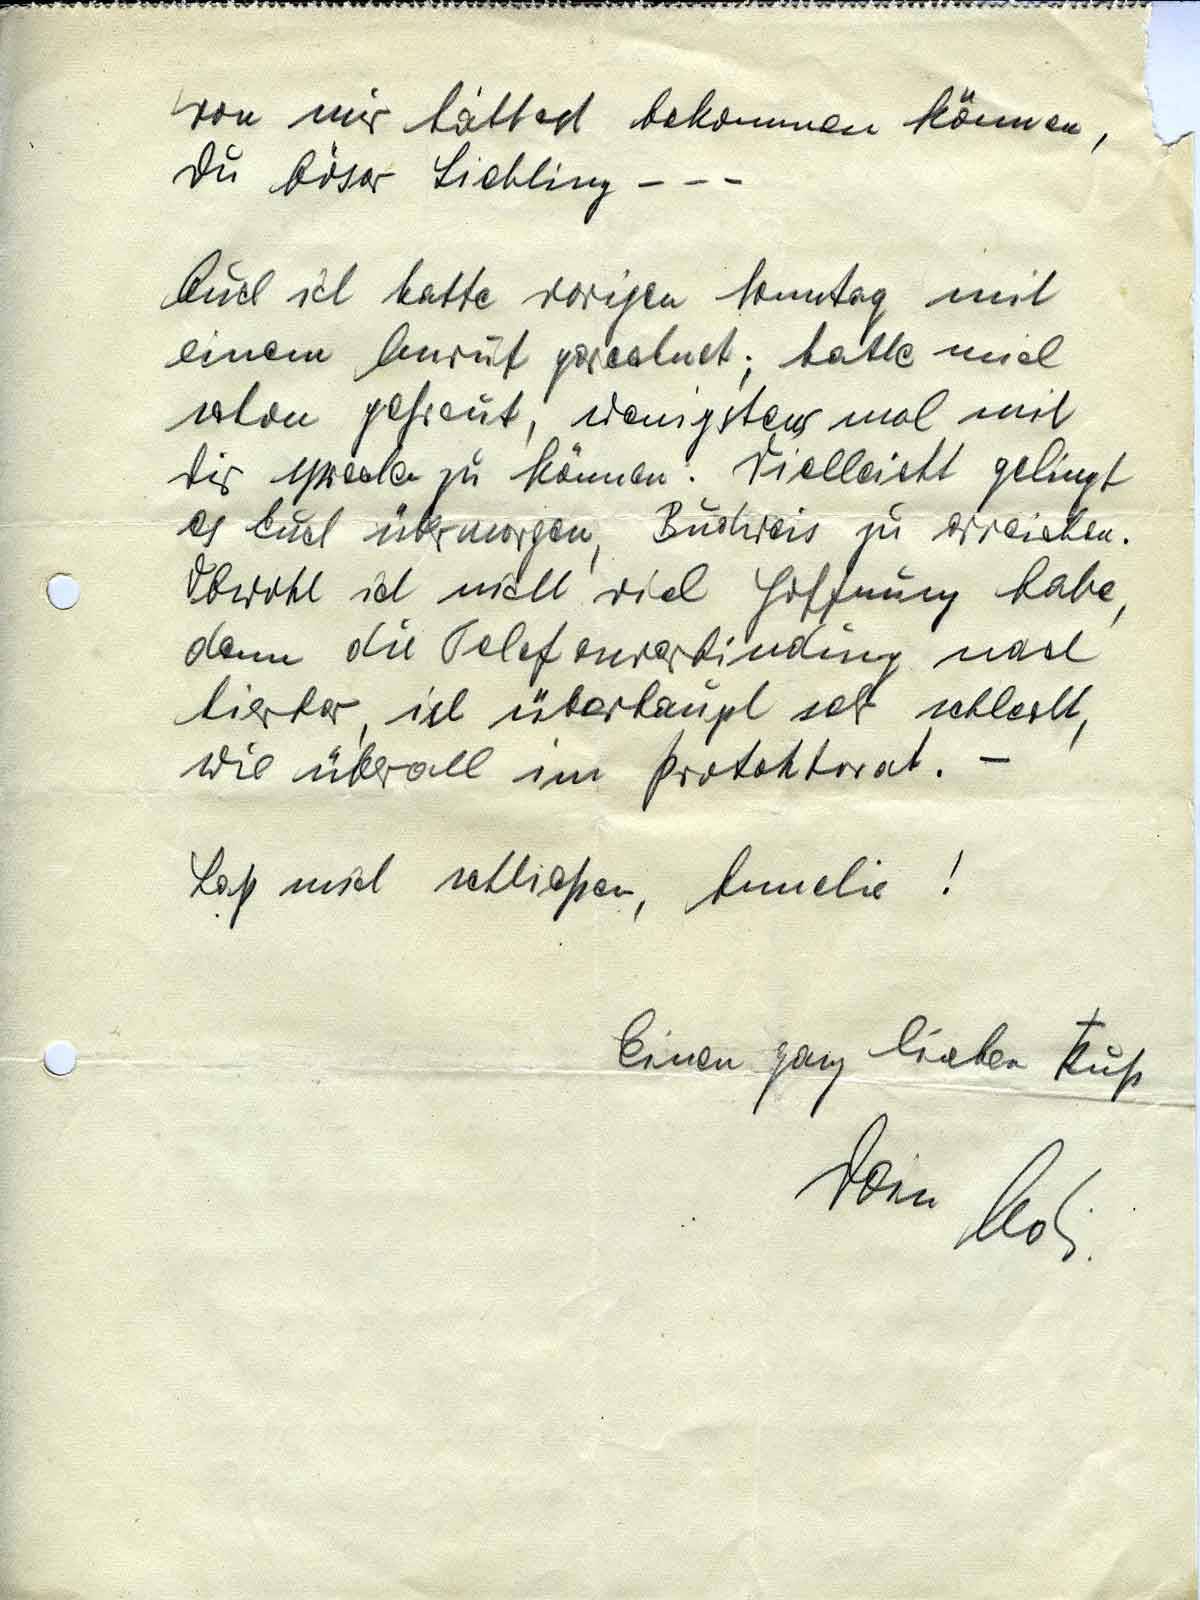 von mir hättest bekommen können,
Du böser Liebling - - -
Auch ich hatte vorigen Sonntag mit
einem Anruf gerechnet; hatte mich
schon gefreut, wenigstens mal mit
Dir sprechen zu können. Vielleicht gelingt
es Euch übermorgen, Budweis zu erreichen.
Obwohl ich nicht viel Hoffnung habe,
denn die Telefonverbindung nach
hierher, ist überhaupt sehr schlecht,
wie überall im Protektorat. -
Laß mich schließen, Annelie!
Einen ganz lieben Kuß
Dein